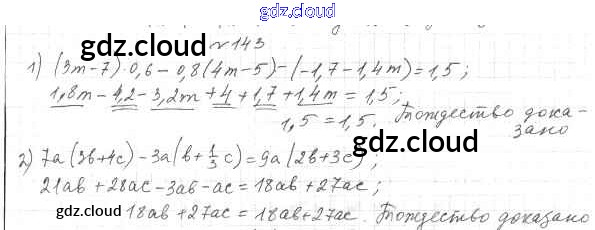 gdz.cloud
№143
gdz.cloud gdz.cloud
1) (3m-7)·0,6-0,8(4m-5)-(-1,7-1,4m)=1,5;
1,8m-4,2-3,2m+4+1,7+1,4m=1,5;
1,5=1,5. Тождество дока-
зано
gdz.cloud gdz.cloud
2) 7a(3b+4c)-3a(b+1/3c)=9a(2b+3c);
21ab+28ac-3ab-ac=18ab+27ac;
gdz.cloud 18ab+27ac=18ab+27ac. Тождество доказано
gdz.cloud gdz.cloud